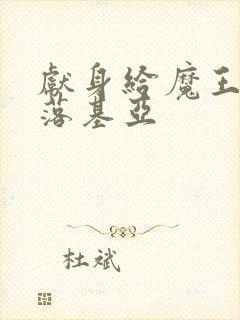 獻身給魔王
落基亞
杜斌